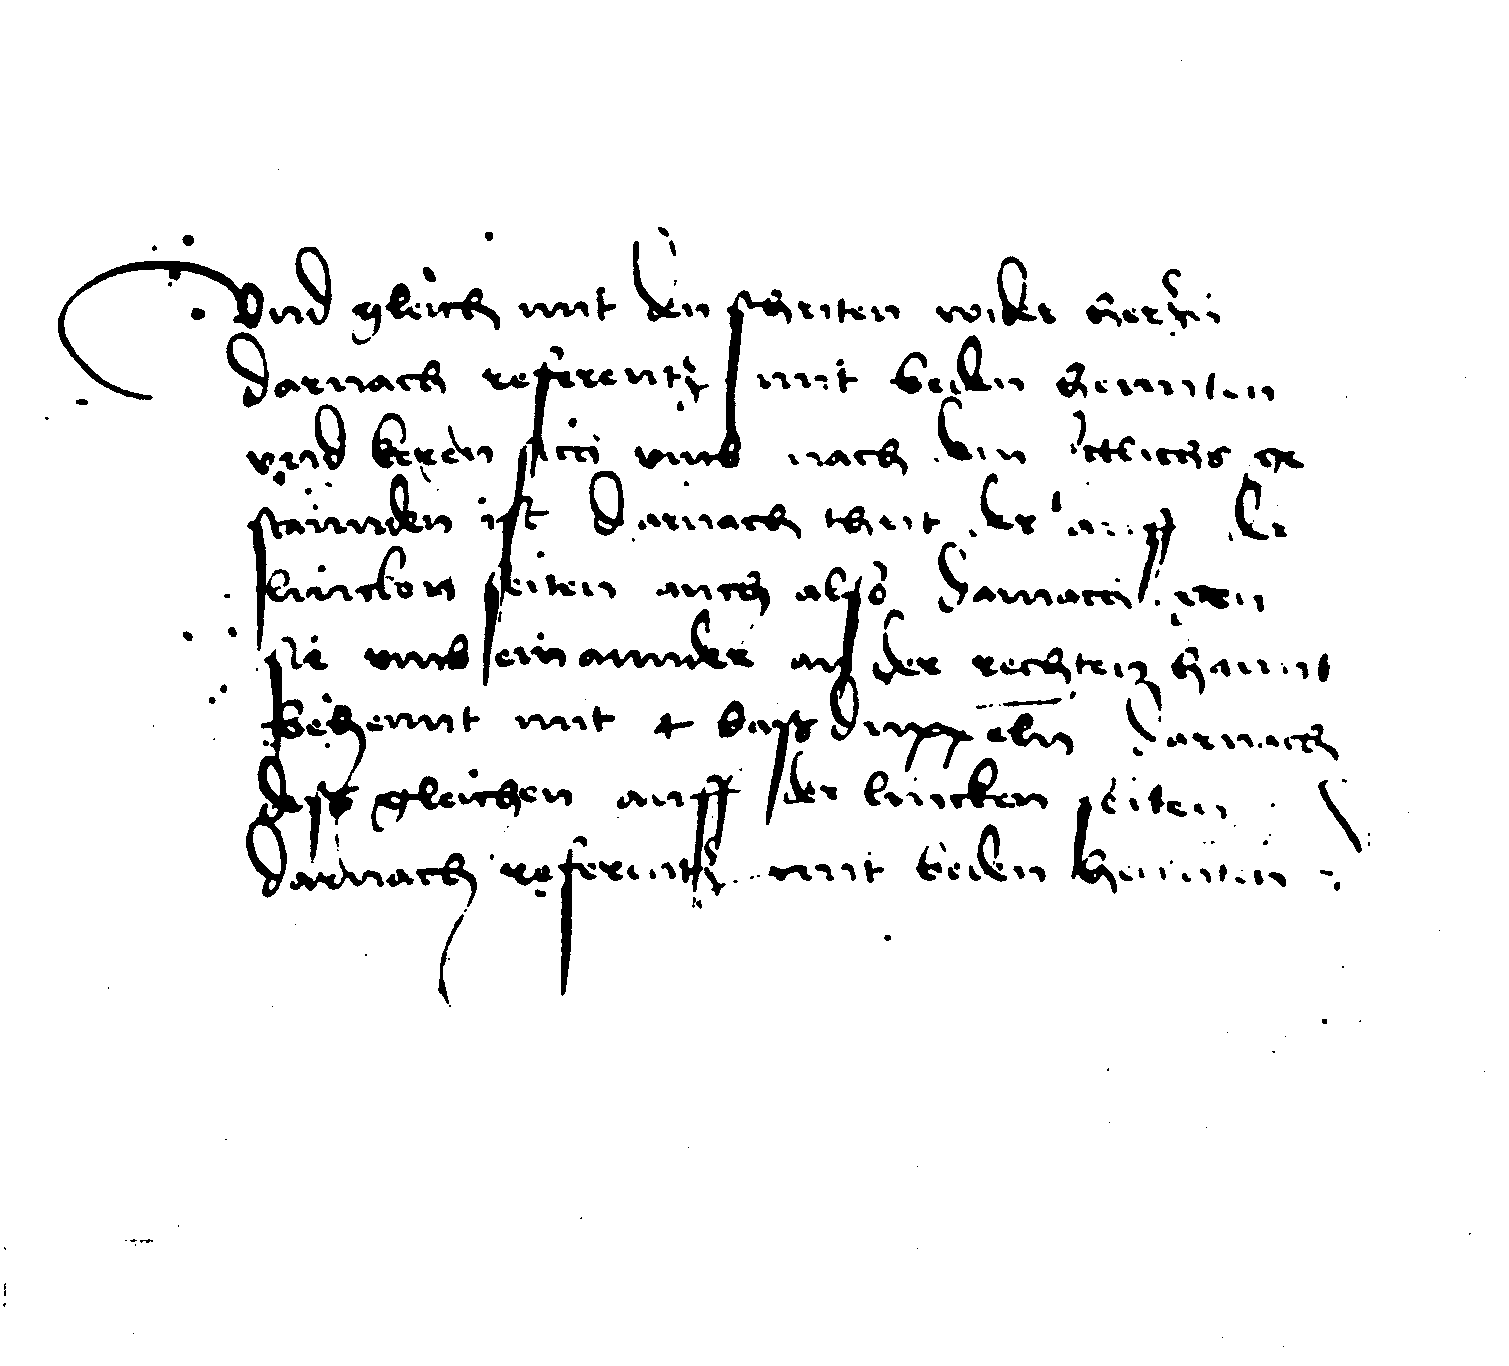 Vnd gleich mit den schriten wider herein
darnach referentz mit beden hennten
vnd keren sich vmb nach dem ietlichs ge
stannden ist Darnach thut er auff der
lincken seiten auch also Darnach gen
sie vmb ein annder an der rechten hannt
behennt mit 4 bass duppeln Darnach
dess gleichen auff der lincken seiten
Darnach referentz mit beden hennten